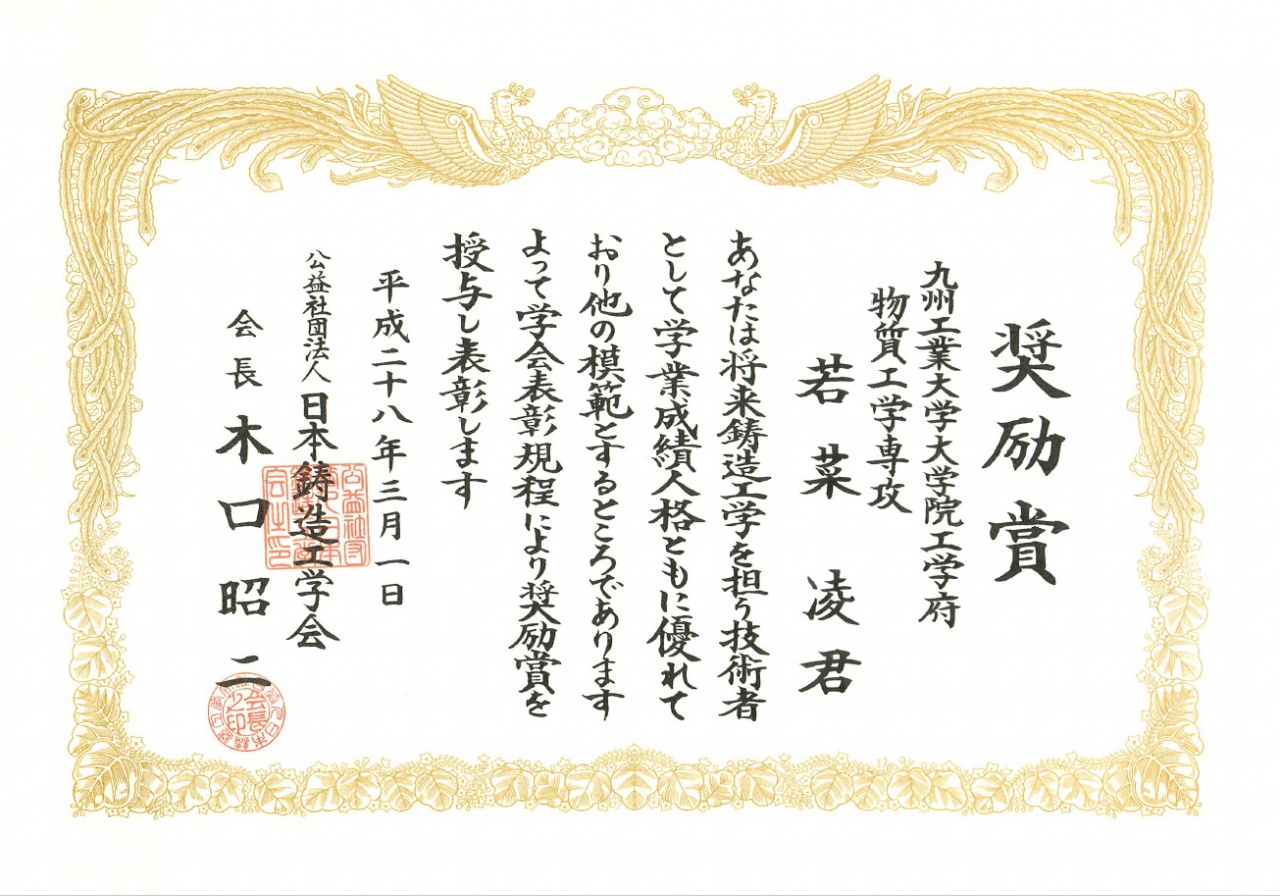 奨励賞
九州工業大学大学院工学府
物質工学専攻
若菜 凌君
あなたは将来鋳造工学を担う技術者
として学業成績人格ともに優れて
おり他の模範とするところであります
よって学会表彰規程により奨励賞を
授与し表彰します
平成二十八年三月一日
公益社団法人 日本鋳造工学会
会長 木口昭二